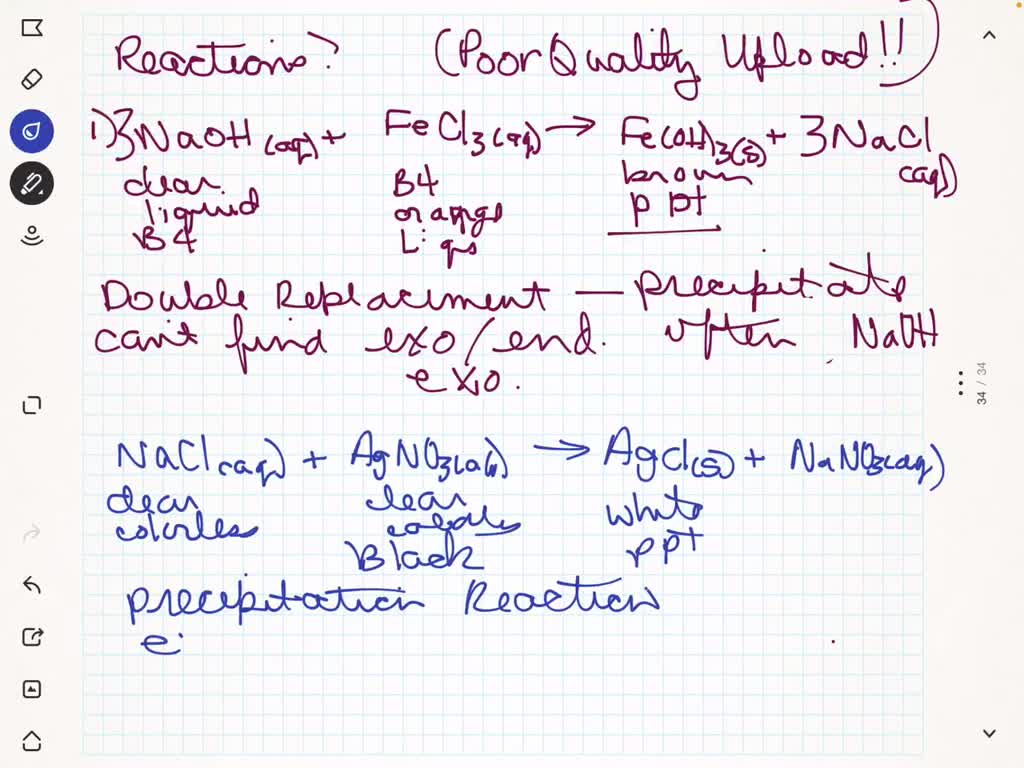 Reactions? (Poor Quality Upload!!)
1) 3NaOH (aq) + FeCl3 (aq) → Fe(OH)3(s) + 3NaCl (aq)
clear liquid B4
B4 orange Liq
brown ppt
Double Replacement — precipitate
can't find exo/end. often NaOH
exo.
NaCl (aq) + AgNO3(aq) → AgCl(s) + NaNO3(aq)
clear colorless
clear
Black
white ppt
precipitation Reaction
e
34 / 34